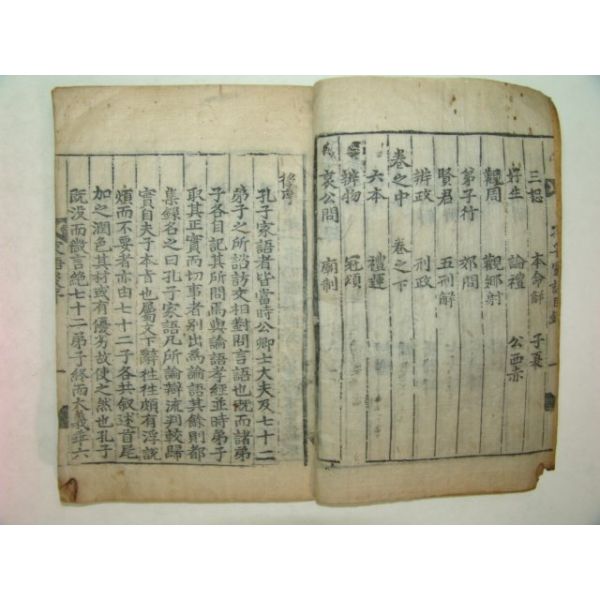 三恕 本命解 子夏
好生 論禮 公西赤
觀周 觀鄉射
弟子行 郊問
賢君 五刑解
辨政 刑政
卷之中 卷之下
六本 禮運
辨物 冠頌
哀公問 廟制
後序
孔子家語者皆當時公卿士大夫及七十二
弟子之所諮訪交相對問言語也旣而諸弟
子各自記其所問焉與論語孝經並時弟子
取其正實而切事者別出爲論語其餘則都
集錄名之曰孔子家語凡所論辯流判較歸
實自夫子本旨也屬文下辭徃徃頗有浮說
煩而不要者亦由七十二子各共叙述首尾
加之潤色其材或有優劣故使之然也孔子
旣沒而微言絶七十二弟子終而大義乖六